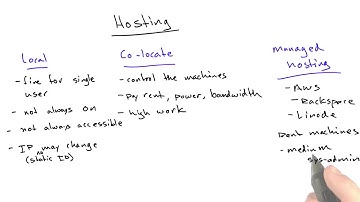 Hosting
Local
- fine for single
user
- not always on
- not always accessible
- IP may change
(no static IP)
Co-locate
- control the machines
- pay rent, power, bandwidth
- high work
managed
hosting
- AWS
- Rackspace
- Linode
Rent machines
- medium
sys-admin